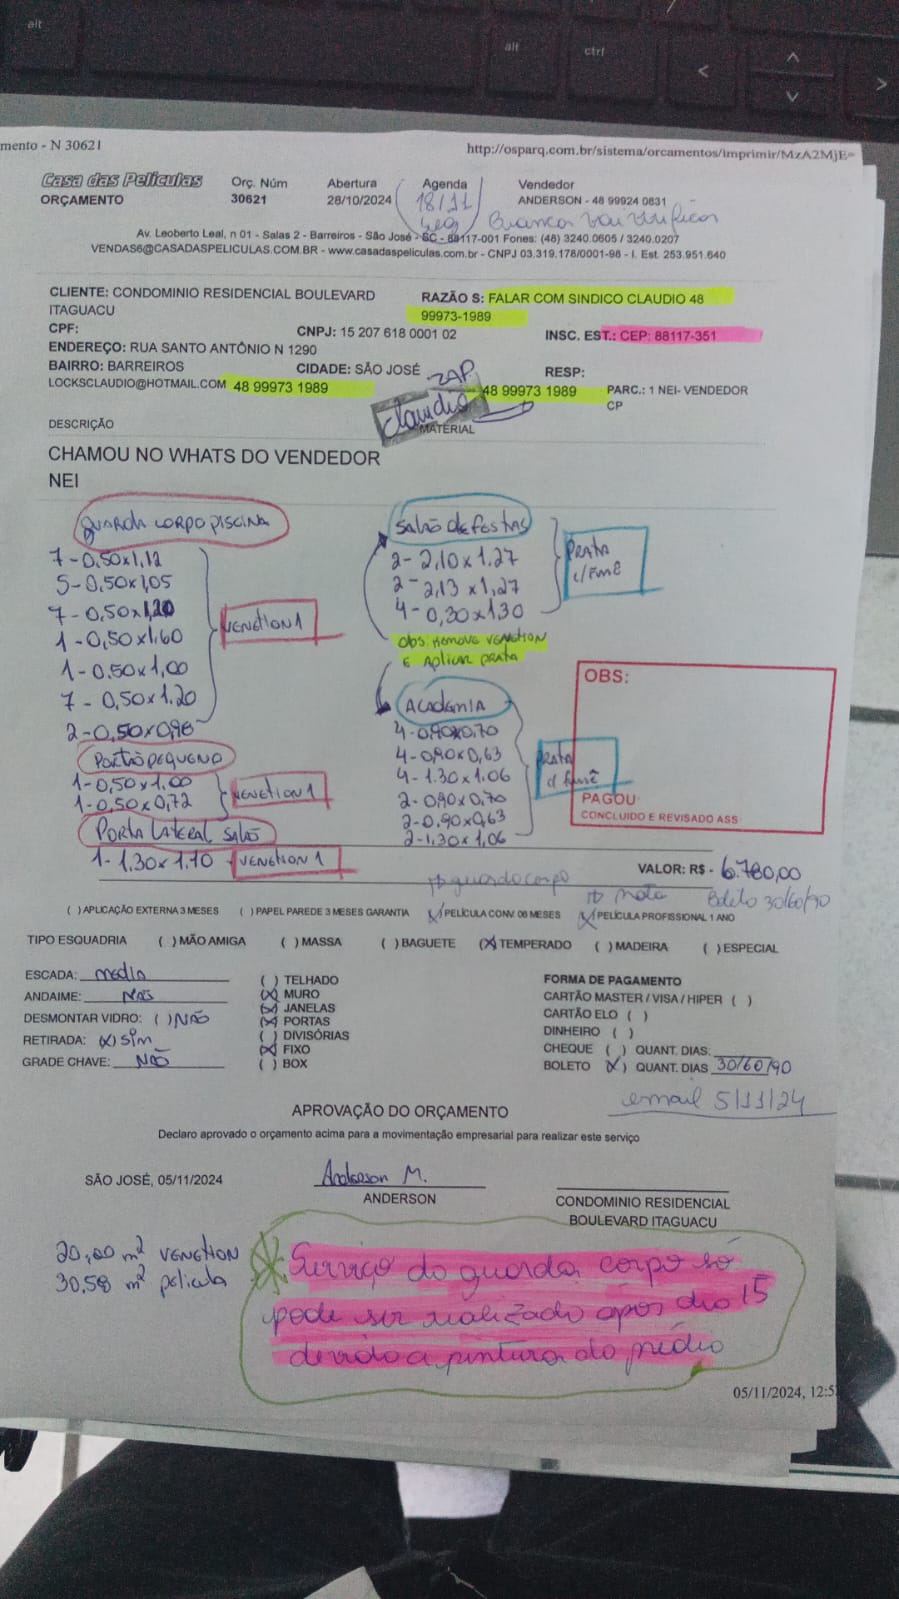 mento - N 30621
http://osparq.com.br/sistema/orcamentos/imprimir/MzA2MjE=
Casa das Películas
ORÇAMENTO
Orç. Núm
30621
Abertura
28/10/2024
Agenda
18/11
seg
Vendedor
ANDERSON - 48 99924 0831
Bianca vai verificar
Av. Leoberto Leal, n 01 - Salas 2 - Barreiros - São José - SC - 88117-001 Fones: (48) 3240.0605 / 3240.0207
VENDAS6@CASADASPELICULAS.COM.BR - www.casadaspeliculas.com.br - CNPJ 03.319.178/0001-98 - I. Est. 253.951.640
CLIENTE: CONDOMINIO RESIDENCIAL BOULEVARD
ITAGUACU
RAZÃO S: FALAR COM SINDICO CLAUDIO 48
99973-1989
CPF:
CNPJ: 15 207 618 0001 02
INSC. EST.: CEP: 88117-351
ENDEREÇO: RUA SANTO ANTÔNIO N 1290
BAIRRO: BARREIROS
CIDADE: SÃO JOSÉ
RESP:
LOCKSCLAUDIO@HOTMAIL.COM 48 99973 1989
ZAP
48 99973 1989
PARC.: 1 NEI- VENDEDOR
CP
Claudio
DESCRIÇÃO
MATERIAL
CHAMOU NO WHATS DO VENDEDOR
NEI
Guarda corpo piscina
7-0,50x1,12
5-0,50x1,05
7-0,50x1,20
1-0,50x1,60
1-0,50x1,00
7-0,50x1,20
2-0,50x0,98
VENETION 1
Portão pequeno
1-0,50x1,00
1-0,50x0,72
VENETION 1
Porta lateral salão
1-1.30x1.10
VENETION 1
Salão de festas
2-2,10x1,27
2-2,13x1,27
4-0,30x1,30
Prata
c/ fumê
Obs: Remove VENETION
E Aplicar prata
Academia
4-0,90x0,70
4-0,90x0,63
4-1.30x1.06
2-0,90x0,70
2-0,90x0,63
2-1,30x1,06
Prata
c/ fumê
OBS:
PAGOU:
CONCLUIDO E REVISADO ASS
VALOR: R$ - 6.780,00
guarda corpo
Boleto 30/60/90
( ) APLICAÇÃO EXTERNA 3 MESES ( ) PAPEL PAREDE 3 MESES GARANTIA (X) PELÍCULA CONV. 06 MESES (X) PELÍCULA PROFISSIONAL 1 ANO
TIPO ESQUADRIA ( ) MÃO AMIGA ( ) MASSA ( ) BAGUETE (X) TEMPERADO ( ) MADEIRA ( ) ESPECIAL
ESCADA: media
ANDAIME: Não
DESMONTAR VIDRO: ( ) NÃO
RETIRADA: (x) Sim
GRADE CHAVE: NÃO
( ) TELHADO
(X) MURO
(X) JANELAS
(X) PORTAS
( ) DIVISÓRIAS
(X) FIXO
( ) BOX
FORMA DE PAGAMENTO
CARTÃO MASTER / VISA / HIPER ( )
CARTÃO ELO ( )
DINHEIRO ( )
CHEQUE ( ) QUANT. DIAS:
BOLETO (X) QUANT. DIAS 30/60/90
email 5/11/24
APROVAÇÃO DO ORÇAMENTO
Declaro aprovado o orçamento acima para a movimentação empresarial para realizar este serviço
SÃO JOSÉ, 05/11/2024
Anderson M.
ANDERSON
CONDOMINIO RESIDENCIAL
BOULEVARD ITAGUACU
20,00 m² VENETION
30,58 m² película
Serviço do guarda corpo só
pode ser realizado após dia 15
devido a pintura do prédio
05/11/2024, 12:5
alt
alt
ctrl